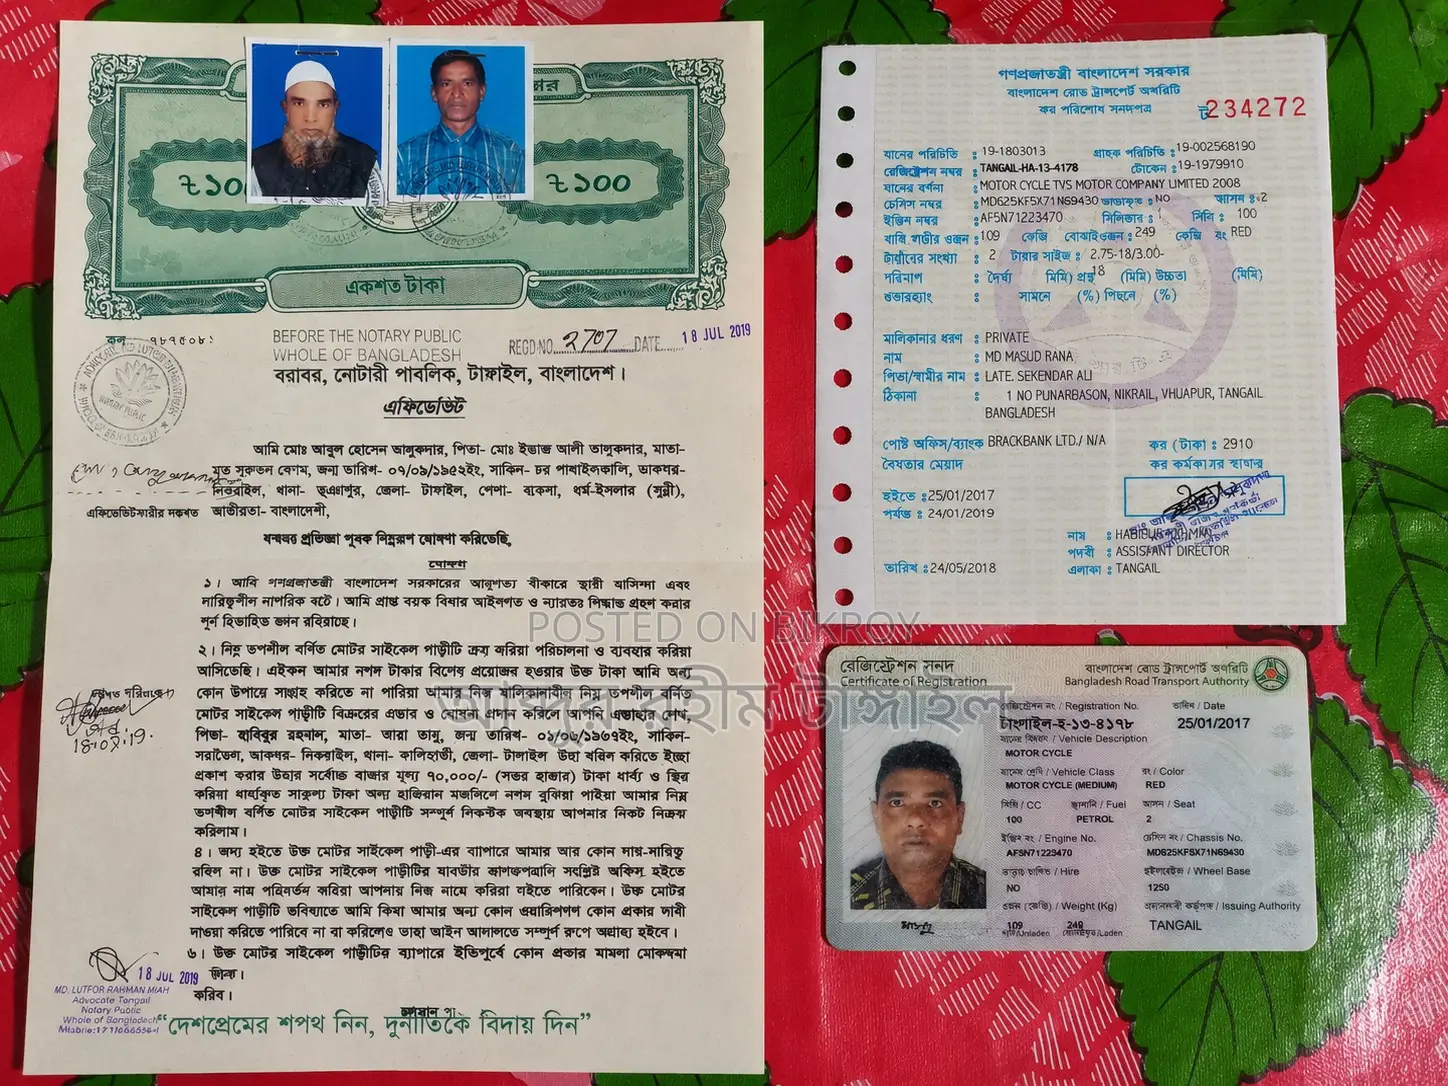 ৳১০০
৳১০০
একশত টাকা
৭৮৭৫০৮১
BEFORE THE NOTARY PUBLIC
WHOLE OF BANGLADESH
REGD NO. 2707 DATE 18 JUL 2019
বরাবর, নোটারী পাবলিক, টাঙ্গাইল, বাংলাদেশ।
এফিডেভিট
আমি মোঃ আবুল হোসেন তালুকদার, পিতা- মোঃ ইন্তাজ আলী তালুকদার, মাতা-
মৃত সুরুতন বেগম, জন্ম তারিখ- ০৭/০৯/১৯৫২ইং, সাকিন- চর পাথাইলকান্দি, ডাকঘর-
নিকরাইল, থানা- ভূঞাপুর, জেলা- টাঙ্গাইল, পেশা- ব্যবসা, ধর্ম-ইসলাম (সুন্নী),
এফিডেভিটকারীর দস্তখত জাতীয়তা- বাংলাদেশী,
ধর্মতঃ প্রতিজ্ঞা পূর্বক নিম্নরূপ ঘোষণা করিতেছি,
ঘোষণা
১। আমি গণপ্রজাতন্ত্রী বাংলাদেশ সরকারের আনুগত্য স্বীকারে স্থায়ী বাসিন্দা এবং
দায়িত্বশীল নাগরিক বটে। আমি প্রাপ্ত বয়স্ক বিধায় আইনগত ও ন্যায়তঃ সিদ্ধান্ত গ্রহণ করার
পূর্ণ হিতাহিত জ্ঞান রহিয়াছে।
২। নিম্ন তপশীল বর্ণিত মোটর সাইকেল গাড়ীটি ক্রয় করিয়া পরিচালনা ও ব্যবহার করিয়া
আসিতেছি। এইক্ষন আমার নগদ টাকার বিশেষ প্রয়োজন হওয়ার উক্ত টাকা আমি অন্য
কোন উপায়ে সংগ্রহ করিতে না পারিয়া আমার নিজ মালিকানাধীন নিম্ন তপশীল বর্ণিত
মোটর সাইকেল গাড়ীটি বিক্রয়ের প্রস্তাব ও ঘোষনা প্রদান করিলে আপনি
পিতা- হাবিবুর রহমান, মাতা- আরা তানু, জন্ম তারিখ- ০১/০৬/১৯৬৭ইং, সাকিন-
সরাতৈল, ডাকঘর- নিকরাইল, থানা- কালিহাতী, জেলা- টাঙ্গাইল উহা খরিদ করিতে ইচ্ছা
প্রকাশ করায় উহার সর্বোচ্চ বাজার মূল্য ৭০,০০০/- (সত্তর হাজার) টাকা ধার্য্য ও স্থির
করিয়া ধার্য্যকৃত সাকুল্য টাকা অদ্য হাজিরান মজলিসে নগদ বুঝিয়া পাইয়া আমার নিম্ন
তপশীল বর্ণিত মোটর সাইকেল গাড়ীটি সম্পূর্ণ নিষ্কন্টক অবস্থায় আপনার নিকট বিক্রয়
করিলাম।
৪। অদ্য হইতে উক্ত মোটর সাইকেল গাড়ী-এর ব্যাপারে আমার আর কোন দায়-দায়িত্ব
রহিল না। উক্ত মোটর সাইকেল গাড়ীটির যাবতীয় কাগজপত্রাদি সংশ্লিষ্ট অফিস হইতে
আমার নাম পরিবর্তন করিয়া আপনার নিজ নামে করিয়া লইতে পারিবেন। উক্ত মোটর
সাইকেল গাড়ীটি ভবিষ্যতে আমি কিম্বা আমার অন্য কোন ওয়ারিশগণ কোন প্রকার দাবী
দাওয়া করিতে পারিবে না বা করিলেও তাহা আইন আদালতে সম্পূর্ণ রূপে অগ্রাহ্য হইবে।
৬। উক্ত মোটর সাইকেল গাড়ীটির ব্যাপারে ইতিপূর্বে কোন প্রকার মামলা মোকদ্দমা
করিব।
18-07-19.
18 JUL 2019
MD. LUTFOR RAHMAN MIAH
Advocate Tangail
Notary Public
Whole of Bangladesh
"দেশপ্রেমের শপথ নিন, দুর্নীতিকে বিদায় দিন"
গণপ্রজাতন্ত্রী বাংলাদেশ সরকার
বাংলাদেশ রোড ট্রান্সপোর্ট অথরিটি
কর পরিশোধ সনদপত্র
ট 234272
যানের পরিচিতি : 19-1803013 গ্রাহক পরিচিতি : 19-002568190
রেজিস্ট্রেশন নম্বর : TANGAIL-HA-13-4178 টোকেন : 19-1979910
যানের বর্ণনা : MOTOR CYCLE TVS MOTOR COMPANY LIMITED 2008
চেসিস নম্বর : MD625KF5X71N69430 ভাড়াকৃত : NO আসন : 2
ইঞ্জিন নম্বর : AF5N71223470 সিলিন্ডার : 1 সিসি : 100
খালি গাড়ীর ওজন : 109 কেজি বোঝাই ওজন : 249 কেজি রং RED
টায়ারের সংখ্যা : 2 টায়ার সাইজ : 2.75-18/3.00-
18
পরিমাপ : দৈর্ঘ্য (মিমি) প্রস্থ (মিমি) উচ্চতা (মিমি)
ওভারহ্যাং : সামনে (%) পিছনে (%)
মালিকানার ধরণ : PRIVATE
নাম : MD MASUD RANA
পিতা/স্বামীর নাম : LATE. SEKENDAR ALI
ঠিকানা : 1 NO PUNARBASON, NIKRAIL, VHUAPUR, TANGAIL
BANGLADESH
পোষ্ট অফিস/ব্যাংক BRACKBANK LTD./ N/A কর (টাকা : 2910
বৈধতার মেয়াদ কর কর্মকর্তার স্বাক্ষর
হইতে : 25/01/2017
পর্যন্ত : 24/01/2019
নাম : HABIBUR
পদবী : ASSISTANT DIRECTOR
তারিখ : 24/05/2018 এলাকা : TANGAIL
POSTED ON BIKROY
আব্দুর রহীম টাঙ্গাইল
রেজিস্ট্রেশন সনদ
Certificate of Registration
বাংলাদেশ রোড ট্রান্সপোর্ট অথরিটি
Bangladesh Road Transport Authority
রেজিস্ট্রেশন নং / Registration No. তারিখ / Date
টাংগাইল-হ-১৩-৪১৭৮ 25/01/2017
যানের বিবরণ / Vehicle Description
MOTOR CYCLE
যানের শ্রেণি / Vehicle Class রং / Color
MOTOR CYCLE (MEDIUM) RED
সিসি / CC জ্বালানি / Fuel আসন / Seat
100 PETROL 2
ইঞ্জিন নং / Engine No. চেসিস নং / Chassis No.
AF5N71223470 MD625KF5X71N69430
ভাড়ায় চালিত / Hire হুইলবেইজ / Wheel Base
NO 1250
ওজন (কেজি) / Weight (Kg) প্রদানকারী কর্তৃপক্ষ / Issuing Authority
109 249 TANGAIL
খালি/Unladen বোঝাইকৃত/Laden
মাসুদ